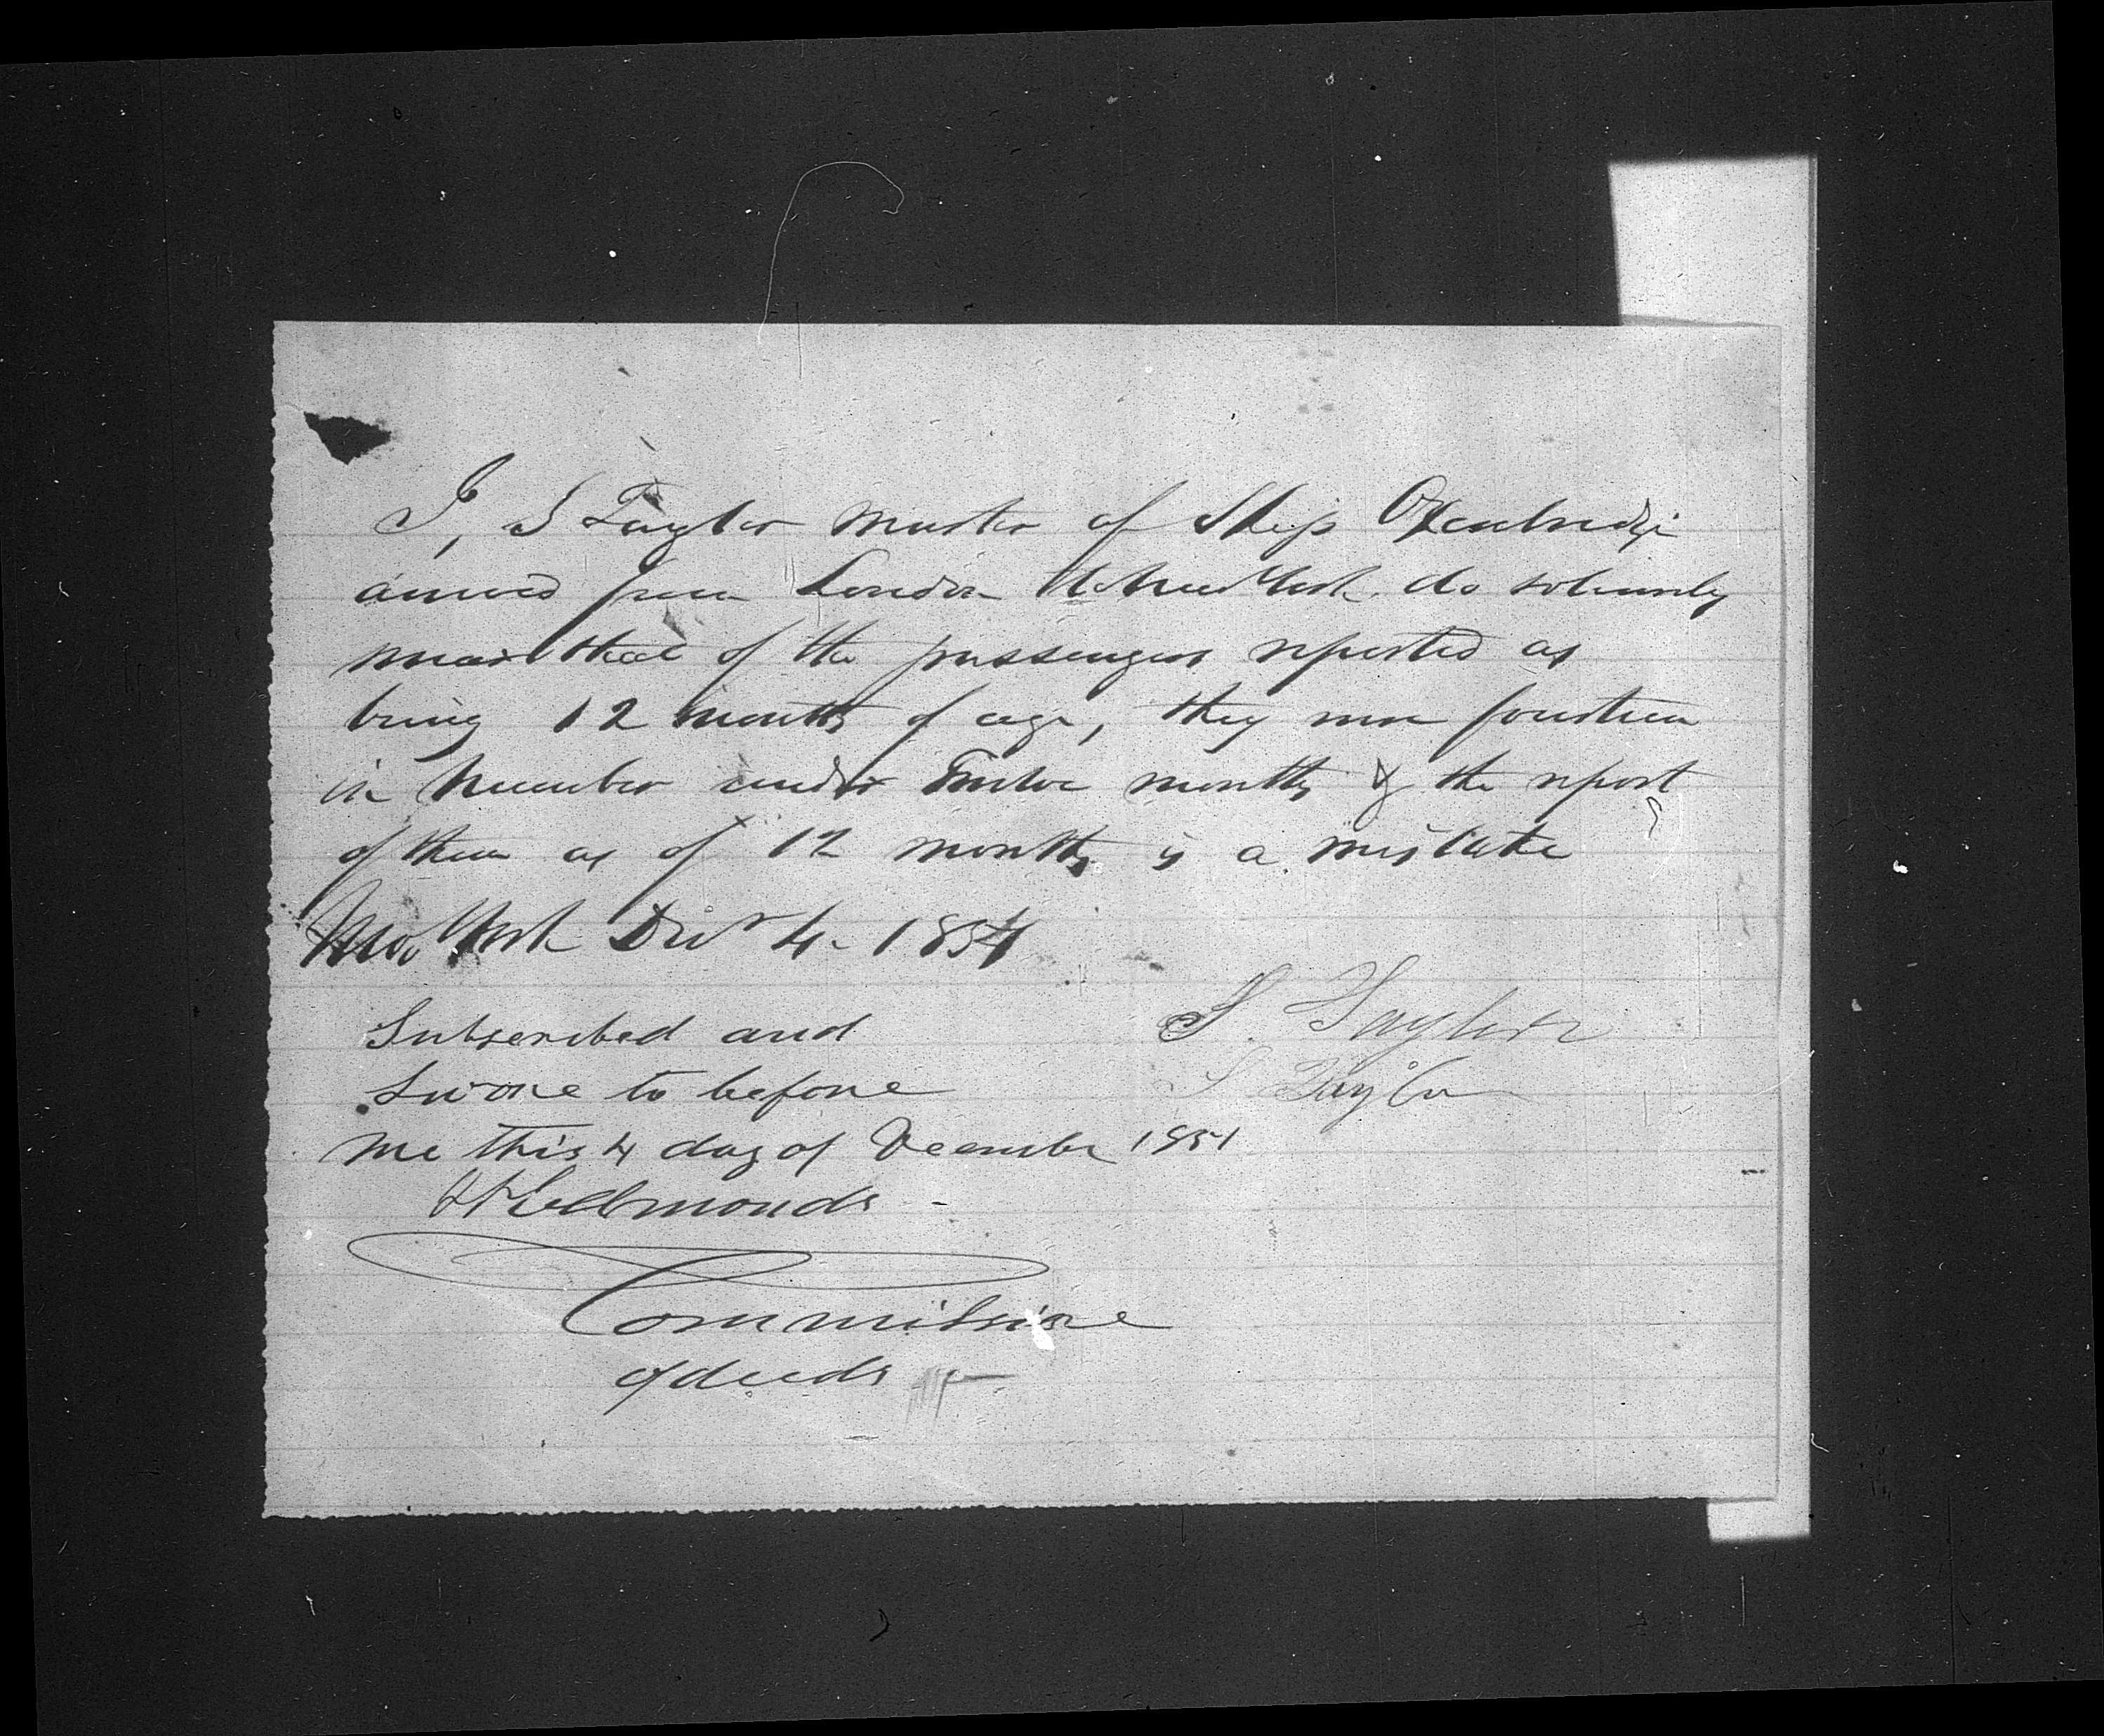 I, S Taylor master of Ship Oxenbridge
arrived from London to New York do solemnly
swear that of the passengers reported as
being 12 months of age, they were fourteen
in Number under Twelve months & the report
of them as of 12 months is a mistake
New York Decr 4. 1854
Subscribed and S. Taylor
Swore to before S Taylor
me this 4 day of December 1851
Edmonds
Commissione
of deeds